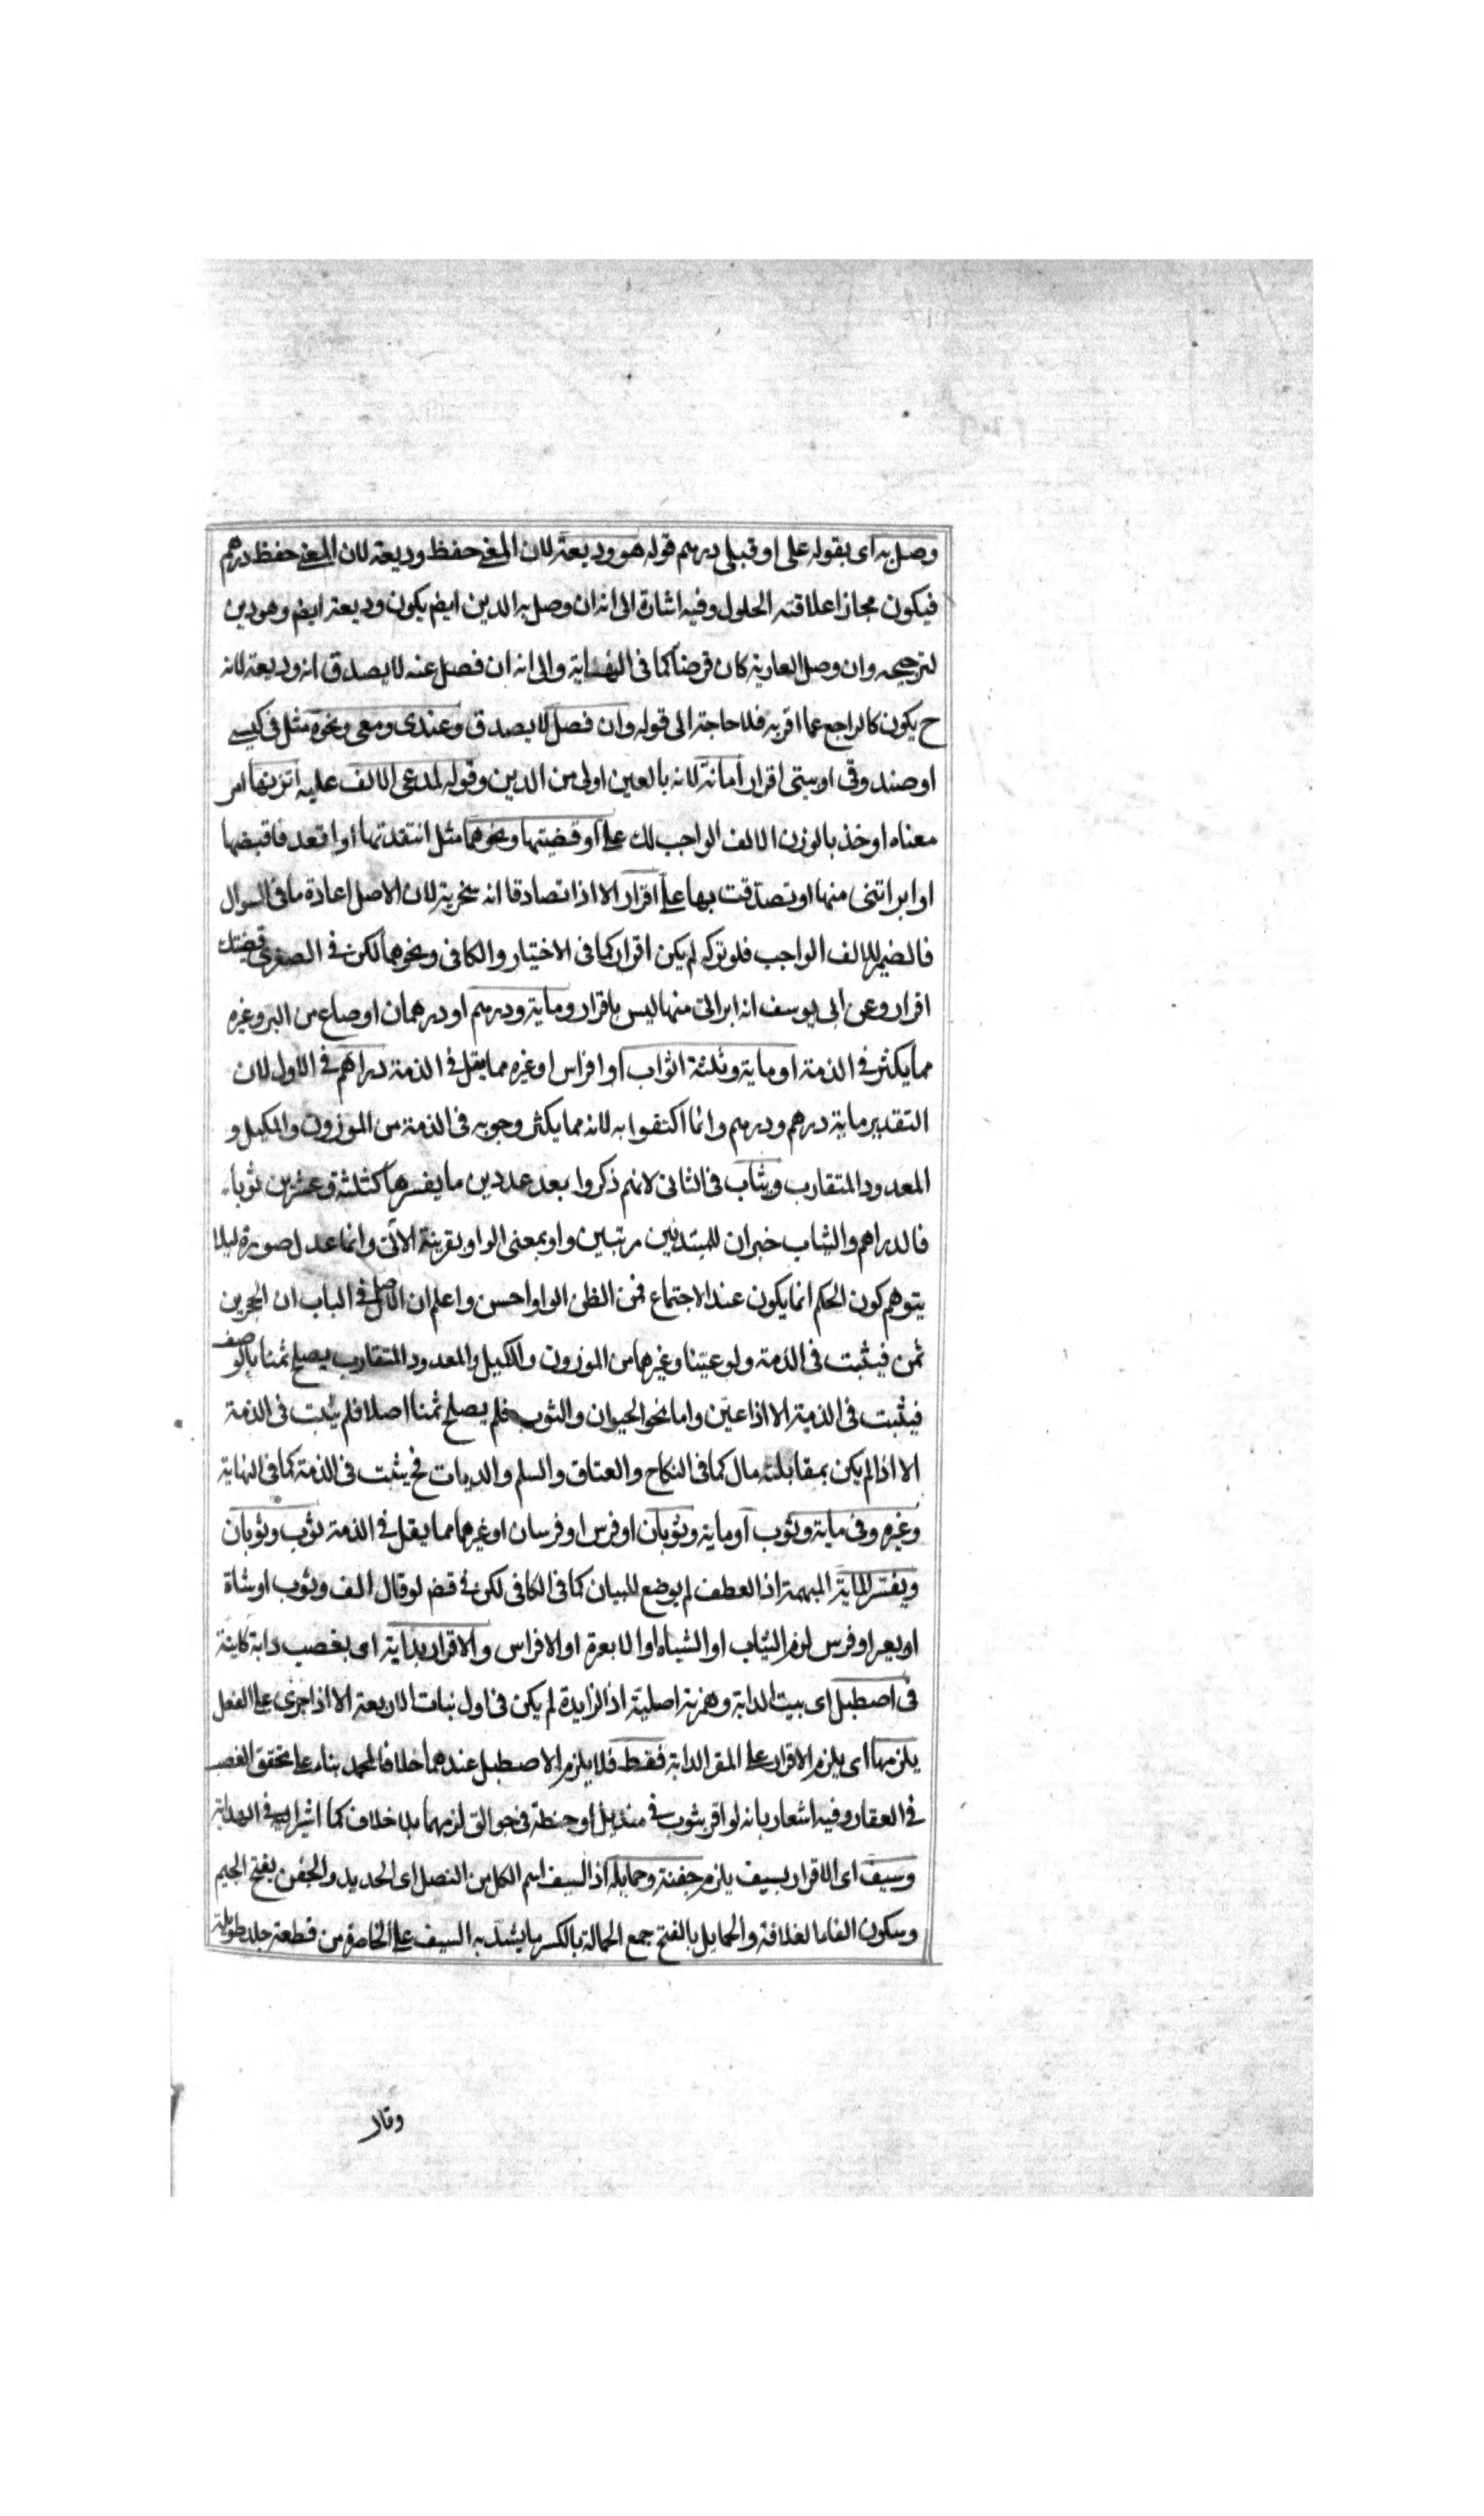 وصل به اى بقوله على او قبلى درهم قوله هو وديعة لان المعنى حفظ وديعته لان المعنى حفظ درهم
فيكون مجازا علاقته الحلول وفيه اشارة الى انه ان وصل به الدين ايضم يكون وديعة ايضم وهو دين
لترجيحه وان وصل العارية كان قرضا كما فى النهاية والى انه ان فصل عنه لا يصدق انه وديعة لانه
ح يكون كالراجع عما اقر به فلا حاجة الى قوله وان فصل لا يصدق وعندى ومعى ونحوه مثل فى كيسى
او صندوقى او بيتى اقرار امانة لانه بالعين اولى من الدين وقوله لمدعى الالف عليه اتزنها امر
معناه او خذ بالوزن الالف الواجب لك على او قضيتها ونحوهما مثل انتقدتها او اقعد فاقبضها
او ابراتنى منها او تصدقت بها على اقرار الا اذا تصادقا انه سخرية لان الاصل اعادة ما فى السوال
فالضمير للالف الواجب فلو تركه لم يكن اقرار كما فى الاختيار والكافى ونحوهما لكن فى الصغرى قضيتك
اقرار وعن ابى يوسف انه ابراتنى منها ليس باقرار ومايه ودرهم او درهمان او صاع من البر وغيره
مما يكثر فى الذمة او مايه وثلثة اثواب او افراس او غيره مما يقل فى الذمة دراهم فى الاول لان
التقدير مايه درهم ودرهم وانما اكتفوا به لانه مما يكثر وجوبه فى الذمة من الموزون والمكيل و
المعدود المتقارب وثياب فى الثانى لانهم ذكروا بعد عددين ما يفسرها كثلثة وعشرين ثوبا
فالدراهم والثياب خبران للمبتدئين مرتبين واو بمعنى الواو بقرينة الاتى وانما عدل صورة ليلا
يتوهم كون الحكم انما يكون عند الاجتماع فمن الظن الواو احسن واعلم ان الاصل فى الباب ان الحجرين
ثمن فيثبت فى الذمة ولو عينا وغيرهما من الموزون والمكيل والمعدود المتقارب يصلح ثمنا بالوصف
فيثبت فى الذمة الا اذا عين واما نحو الحيوان والثوب فلم يصلح ثمنا اصلا فلم يثبت فى الذمة
الا اذا لم يكن بمقابلته مال كما فى النكاح والعتاق والسلم والديات فح يثبت فى الذمة كما فى النهاية
وغيره وفى مايه وثوب او مايه وثوبان او فرس او فرسان او غيرهما مما يقل فى الذمة ثوب وثوبان
ويفسر الماية المبهمة اذ العطف لم يوضع للبيان كما فى الكافى لكن فى قضم لو قال الف وثوب او شاة
او بعير او فرس لزم الثياب او الشياه او الابعرة او الافراس والاقرار بدابة اى بغصب دابة كاينة
فى اصطبل اى بيت الدابة وهمزته اصلية اذ الزايدة لم يكن فى اول بنات الاربعة الا اذا جرى على الفعل
يلزمها اى يلزم الاقرار على المقر الدابة فقط فلا يلزم الاصطبل عندهما خلافا لمحمد بناء على تحقق الغصب
فى العقار وفيه اشعار بانه لو اقر بثوب فى منديل او حنطة فى جوالق لزمهما بلا خلاف كما اشير اليه فى الهداية
وسيف اى الاقرار بسيف يلزم جفنه وحمايله اذ السيف اسم الكل من النصل اى الحديد والجفن بفتح الجيم
وسكون الفا ما لغلافه والحمايل بالفتح جمع الحمالة بالكسر ما يشد به السيف على الخاصرة من قطعة جلد طويلة
وقال